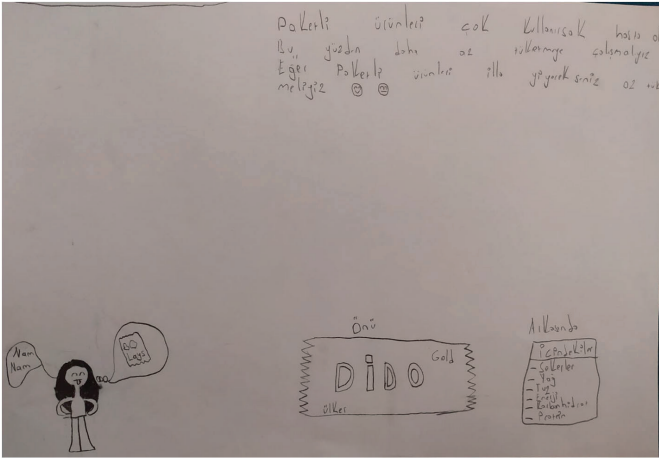 Paketli ürünleri çok kullanırsak hasta
Bu yüzden daha az tüketmeye çalışmalıyız
Eğer Paketli ürünleri illa yiyeceksiniz az
meliyiz
Nam
Nam
Lays
Önü
DİDO
Gold
ülker
Arkasında
İçindekiler
- Şekerler
- Yağ
- Tuz
- Enerji
- Karbonhidrat
- Protein